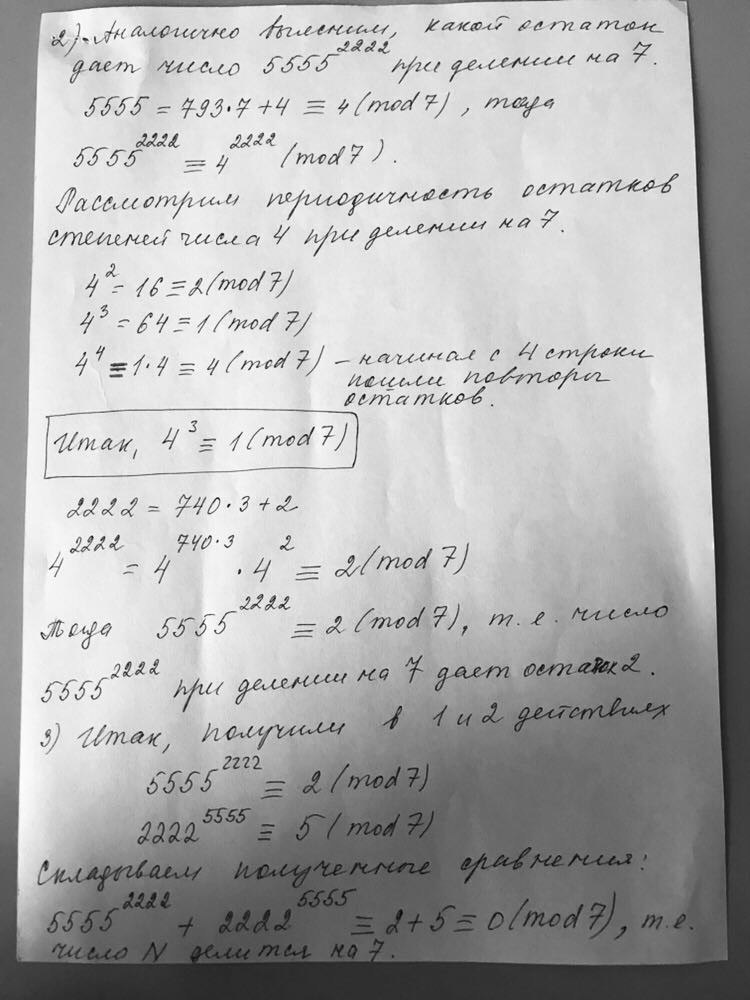 2). Аналогично выясним, какой остаток
дает число 5555^2222 при делении на 7.
5555 = 793·7+4 ≡ 4 (mod 7), тогда
5555^2222 ≡ 4^2222 (mod 7).
Рассмотрим периодичность остатков
степеней числа 4 при делении на 7.
4^2 = 16 ≡ 2 (mod 7)
4^3 = 64 ≡ 1 (mod 7)
4^4 ≡ 1·4 ≡ 4 (mod 7) – начиная с 4 строки
пошли повторы
остатков.
Итак, 4^3 ≡ 1 (mod 7)
2222 = 740·3+2
4^2222 = 4^740·3 · 4^2 ≡ 2 (mod 7)
Тогда 5555^2222 ≡ 2 (mod 7), т.е. число
5555^2222 при делении на 7 дает остаток 2.
3) Итак, получили в 1 и 2 действиях
5555^2222 ≡ 2 (mod 7)
2222^5555 ≡ 5 (mod 7)
Складываем полученные сравнения:
5555^2222 + 2222^5555 ≡ 2+5 ≡ 0 (mod 7), т.е.
число N делится на 7.